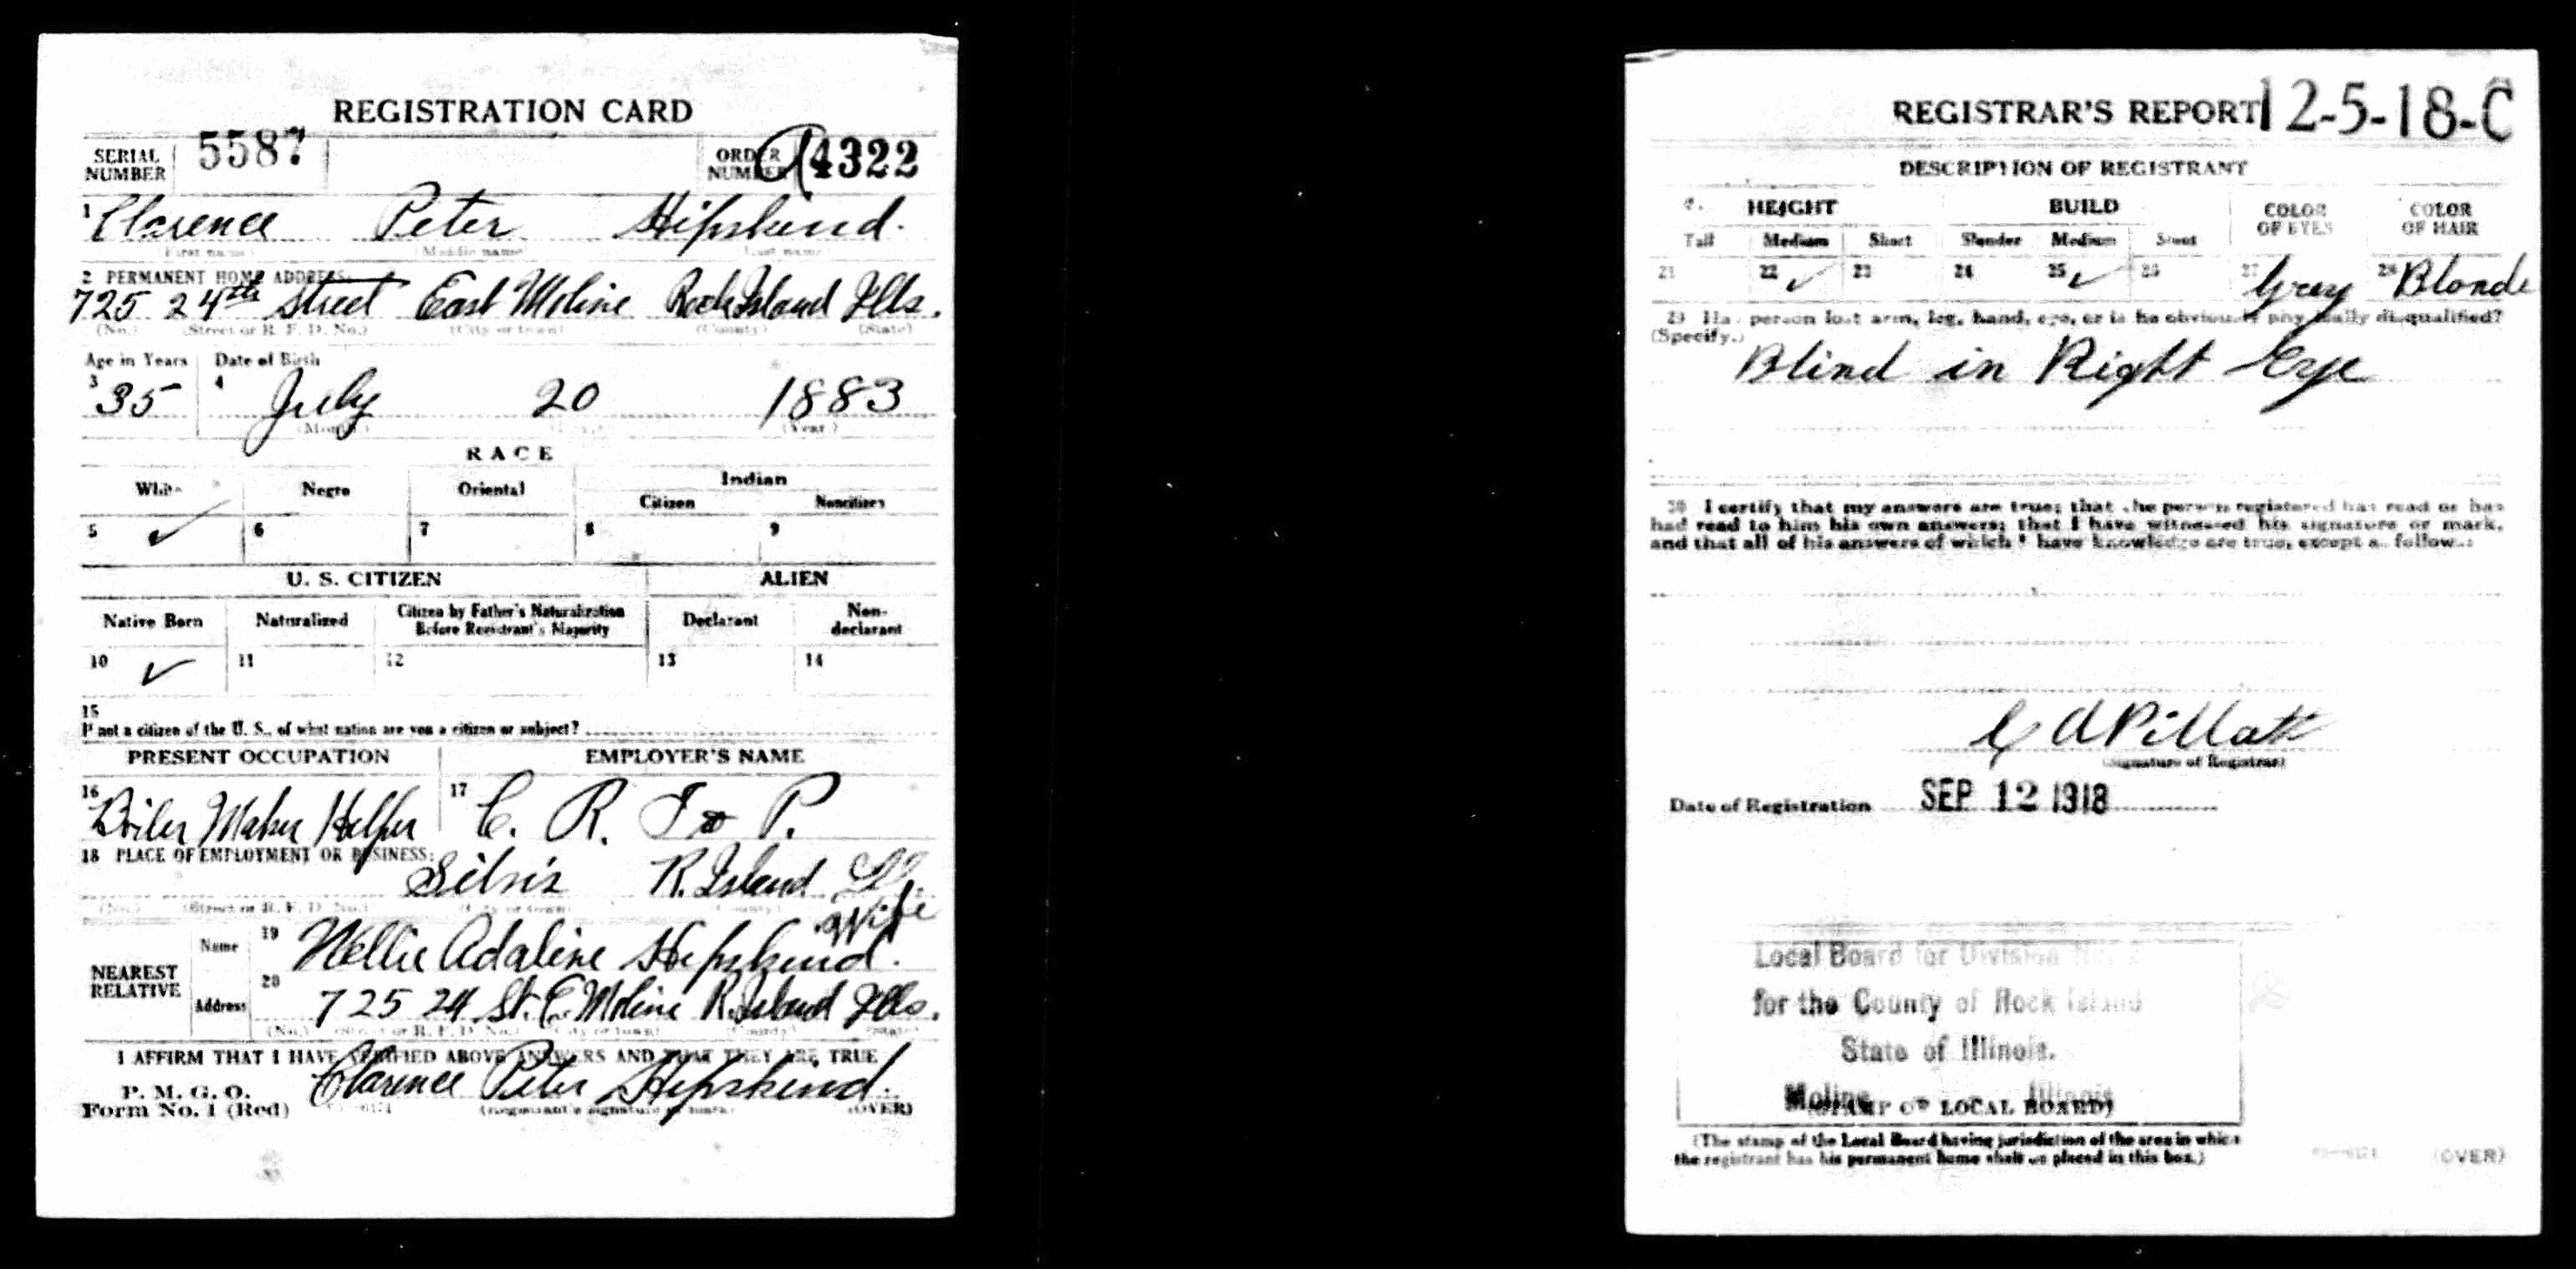 REGISTRATION CARD
SERIAL NUMBER 5587 ORDER NUMBER A4322
1 Clarence Peter Hipskind.
(First name) (Middle name) (Last name)
2 PERMANENT HOME ADDRESS:
725 24th Street East Moline Rock Island Ills.
(No.) (Street or R. F. D. No.) (City or town) (County) (State)
Age in Years Date of Birth
3 35 4 July 20 1883
(Month.) (Day.) (Year.)
RACE
White Negro Oriental Indian
Citizen Noncitizen
5 ✓ 6 7 8 9
U. S. CITIZEN ALIEN
Native Born Naturalized Citizen by Father's Naturalization Before Registrant's Majority Declarant Non-declarant
10 ✓ 11 12 13 14
15
If not a citizen of the U. S., of what nation are you a citizen or subject?
PRESENT OCCUPATION EMPLOYER'S NAME
16 Boiler Maker Helper 17 C. R. I & P.
18 PLACE OF EMPLOYMENT OR BUSINESS:
Silvis R. Island Ill.
(No.) (Street or R. F. D. No.) (City or town) (County)
wife
NEAREST RELATIVE Name 19 Nellie Adaline Hipskind.
Address 20 725 24 St. E. Moline R. Island Ills.
(No.) (Street or R. F. D. No.) (City or town) (County) (State)
I AFFIRM THAT I HAVE VERIFIED ABOVE ANSWERS AND THAT THEY ARE TRUE
P. M. G. O.
Form No. 1 (Red) Clarence Peter Hipskind.
(Registrant's signature or mark) (OVER)
REGISTRAR'S REPORT 12-5-18-C
DESCRIPTION OF REGISTRANT
HEIGHT BUILD COLOR OF EYES COLOR OF HAIR
Tall Medium Short Slender Medium Stout
21 22 ✓ 23 24 25 ✓ 26 27 Grey 28 Blonde
29 Has person lost arm, leg, hand, eye, or is he obviously physically disqualified?
(Specify.)
Blind in Right Eye
30 I certify that my answers are true; that the person registered has read or has
had read to him his own answers; that I have witnessed his signature or mark,
and that all of his answers of which I have knowledge are true, except as follows:
(Signature of Registrar)
Date of Registration SEP 12 1918
Local Board for Division No. 2
for the County of Rock Island
State of Illinois.
Moline - - Illinois
(STAMP OF LOCAL BOARD)
(The stamp of the Local Board having jurisdiction of the area in which
the registrant has his permanent home shall be placed in this box.)
(OVER)